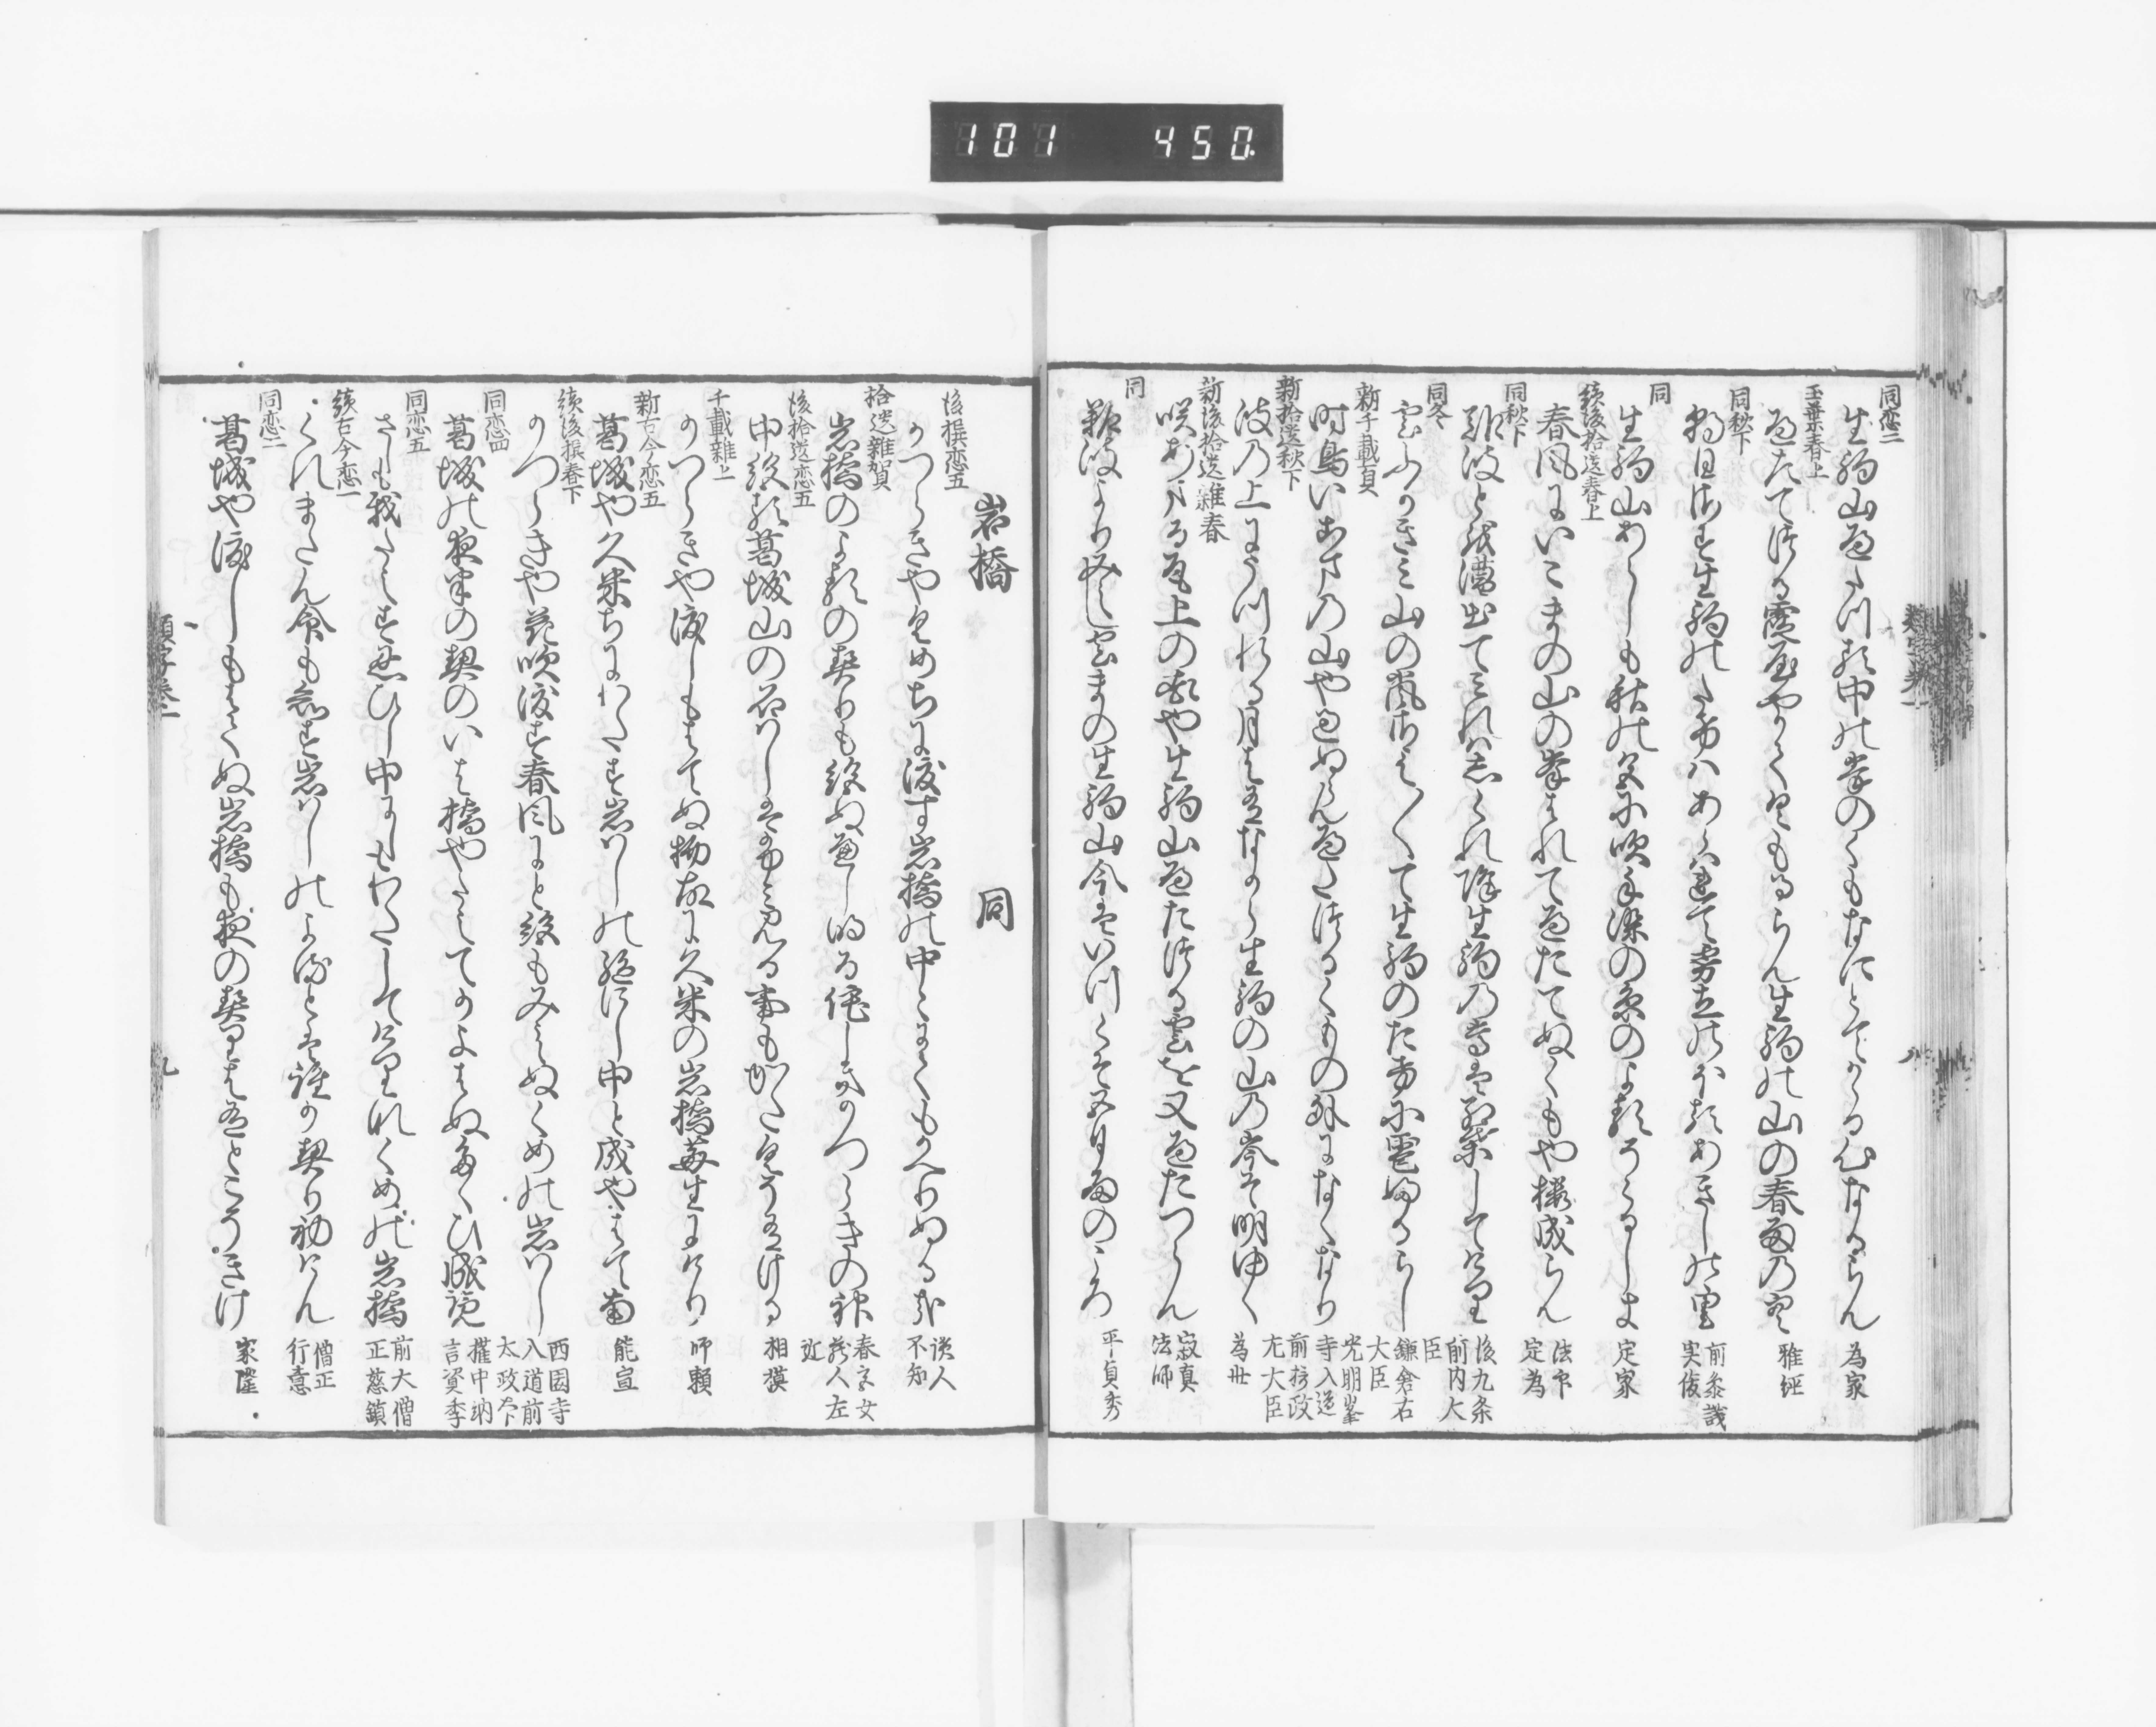 101 450.
同恋二
生駒山へたつる中の峯のくもなにとてかゝる心なるらん 為家
玉葉春上
へたてつる霞 やかてくれもるらん生駒の山の春雨の 雅経
同秋下
生駒の あらしの 前参議実俊
同
生駒山あらしも秋の色に吹手染の糸のよるそくるしき 定家
続後拾遺春上
春風にいこまの山の峯はれてへたてぬくもや桜成らん 法印定為
同秋下
難波とを漕出てみれは しくれ 生駒の 後九条前内大臣
同冬
雲ふかきみ山の嵐さえ〳〵て生駒のたけに霰ふるらし 鎌倉右大臣
新千載夏
時鳥いこまの山や過ぬらんへたつるくもの外になくなり 光明峯寺入道前摂政左大臣
新拾遺秋下
波の上にうつれる月は有なから生駒の山の峯そ明ゆく 為世
新後拾遺雑春
咲あまる尾上の花や生駒山へたつる雲を又へたつらん 寂真法師
同
難波よりみし雲まの生駒山今はいつくそ五月雨のころ 平貞秀
岩橋 同
後撰恋五
かつらきやくめちに渡す岩橋の中々にてもかへりぬる哉 読人不知
拾遺雑賀
岩橋のよるの契りも絶ぬへし明る侘しきかつらきの神 春宮女蔵人左近
後拾遺恋五
中絶る葛城山の岩はしはふみみる事もかたくそ有ける 相模
千載雑上
かつらきや渡しもはてぬ物故に久米の岩橋苔生にけり 師頼
新古今恋五
葛城や久米ちにわたす岩はしの絶にし中と成やはて南 能宣
続後撰春下
かつらきや花吹渡す春風にと絶もみえぬくめの岩はし 西園寺入道前太政大臣
同恋四
葛城の夜半の契のいは橋やたえてかよはぬたくひ成覧 権中納言資季
同恋五
さしも我たえす忍ひし中にしもわたしてけりなくめの岩橋 前大僧正慈鎮
続古今恋一
くれまたん命も知す岩はしのよるとは誰か契り初けん 僧正行意
同恋二
葛城や渡しもはてぬ岩橋も夜の契りは有とこそきけ 家隆
類字巻一 九